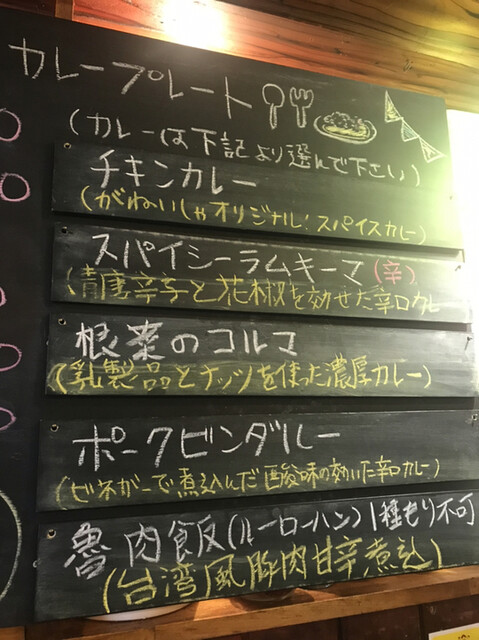 カレープレート
(カレーは下記より選んで下さい)
チキンカレー
(がねいしゃオリジナル!スパイスカレー)
スパイシーラムキーマ(辛)
(青唐辛子と花椒を効せた辛口カレ
根菜のコルマ
(乳製品とナッツを使った濃厚カレー)
ポークビンダルー
(ビネガーで煮込んだ酸味の効いた辛口カレー)
魯肉飯(ルーローハン)1種もり不可
(台湾風豚肉甘辛煮込)